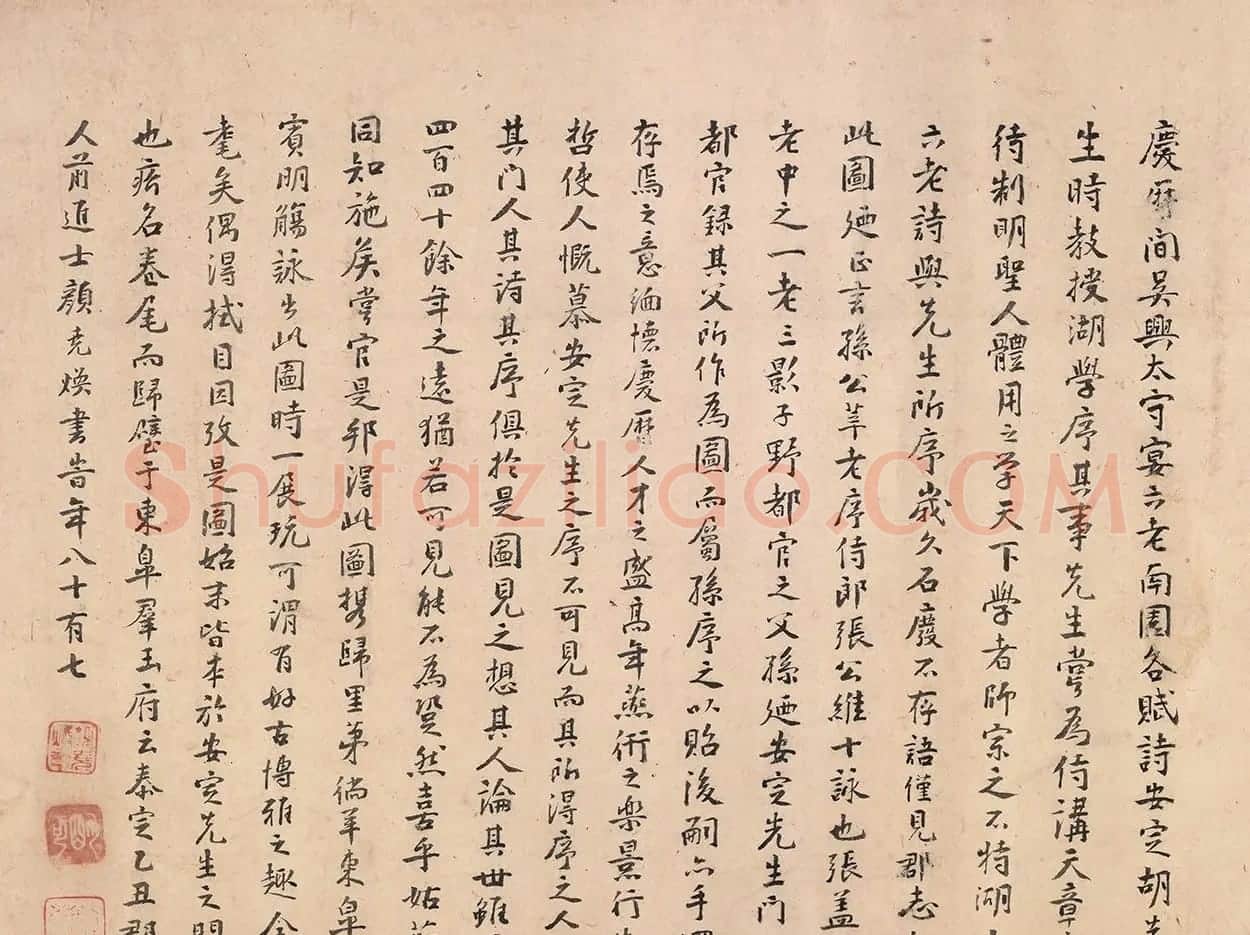 慶曆間吳興太守宴六老南園各賦詩安定胡先
生時教授湖學序其事先生嘗為侍講天章
待制明聖人體用之學天下學者師宗之不特湖
六老詩與先生所序歲久石廢不存語僅見郡志
此圖廼正言孫公莘老序侍郎張公維十詠也張蓋
老中之一老三影子野都官之父孫廼安定先生門
都官錄其父所作為圖而屬孫序之以貽後嗣六手
存焉之意緬懷慶曆人才之盛高年燕衎之樂景行
哲使人慨慕安定先生之序不可見而其所得序之人
其門人其詩其序俱於是圖見之想其人論其世雖
四百四十餘年之遠猶若可見能不為
然喜乎姑
同知施矦嘗官是邦得此圖携歸里第徜羊東皐
賓明觴詠出此圖時一展玩可謂有好古博雅之趣
耄矣偶得拭目因攷是圖始末皆本於安定先生之門
也疥名卷尾而歸璧于東皐羣玉府云泰定乙丑郡
人前進士顏堯煥書旹年八十有七
Shufaziliao.COM